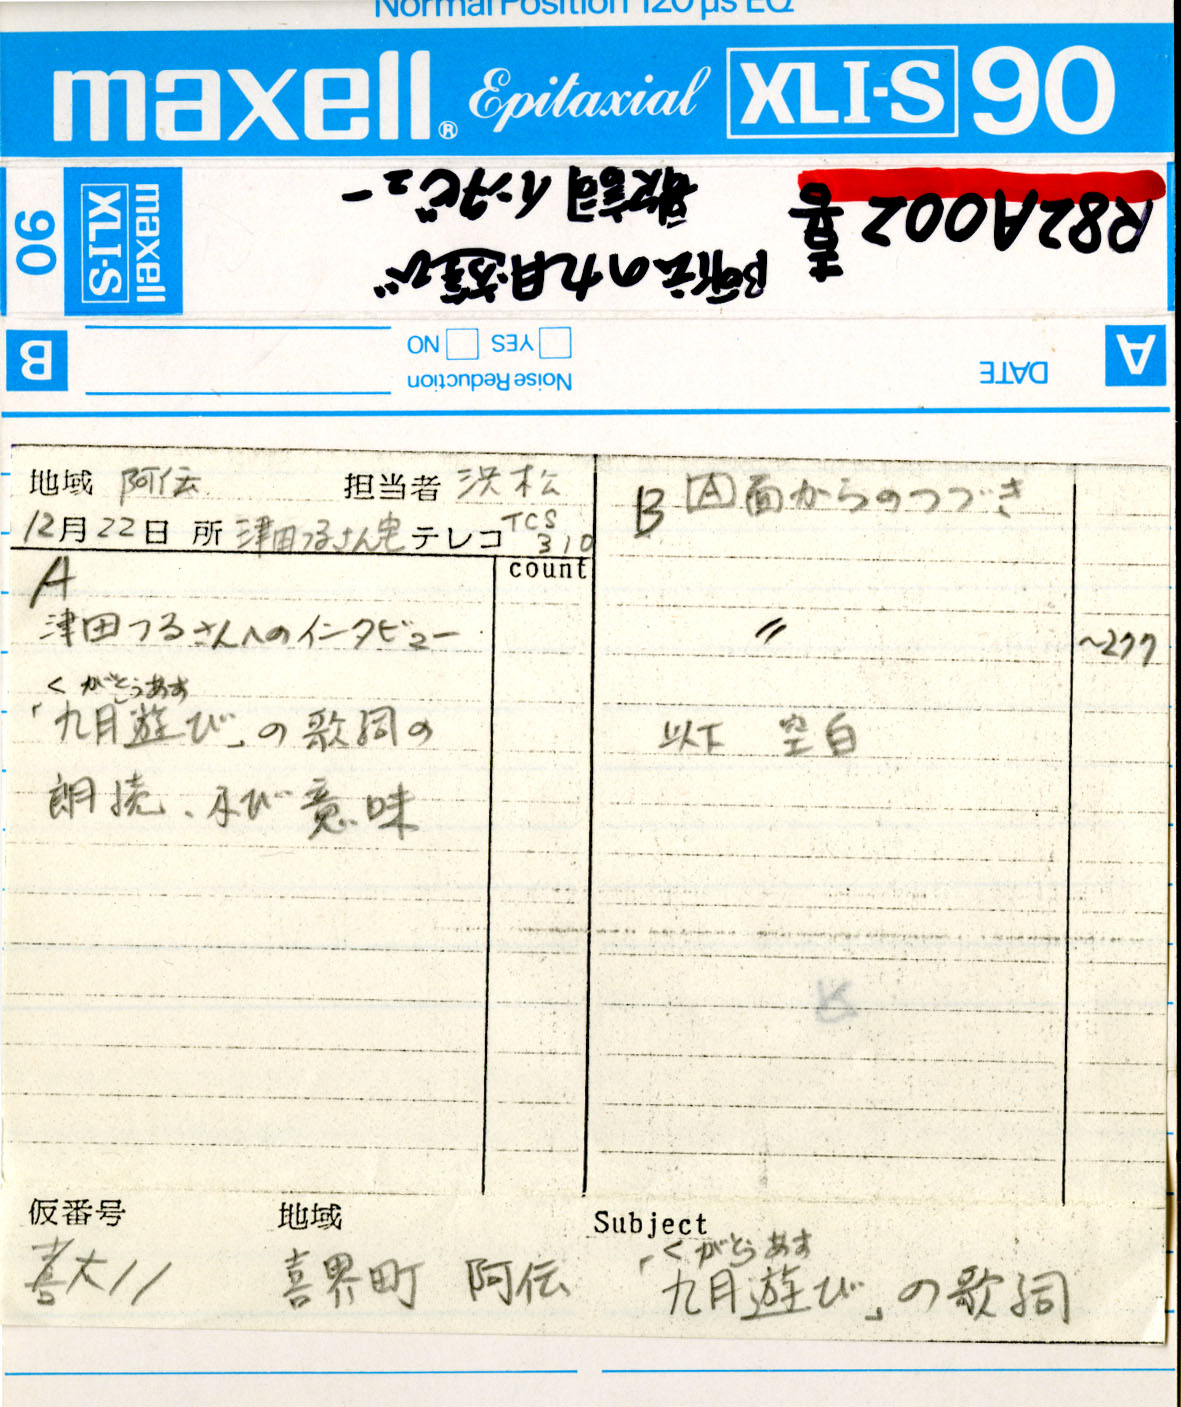 Normal Position 120 μs EQ
maxell® Epitaxial XLI-S 90
R82A002 喜
阿伝の九月遊び
歌詞インタビュー
maxell
XLI-S
90
A
DATE
Noise Reduction
YES NO
B
地域 阿伝 担当者 浜松
12月22日 所 津田つるさん宅 テレコ TCS 310
count
A
津田つるさんへのインタビュー
くがとぅあす
「九月遊び」の歌詞の
朗読、及び意味
B A面からのつづき
〃 〜277
以下 空白
仮番号 地域 Subject
喜大11 喜界町 阿伝
くがとぅあす
「九月遊び」の歌詞